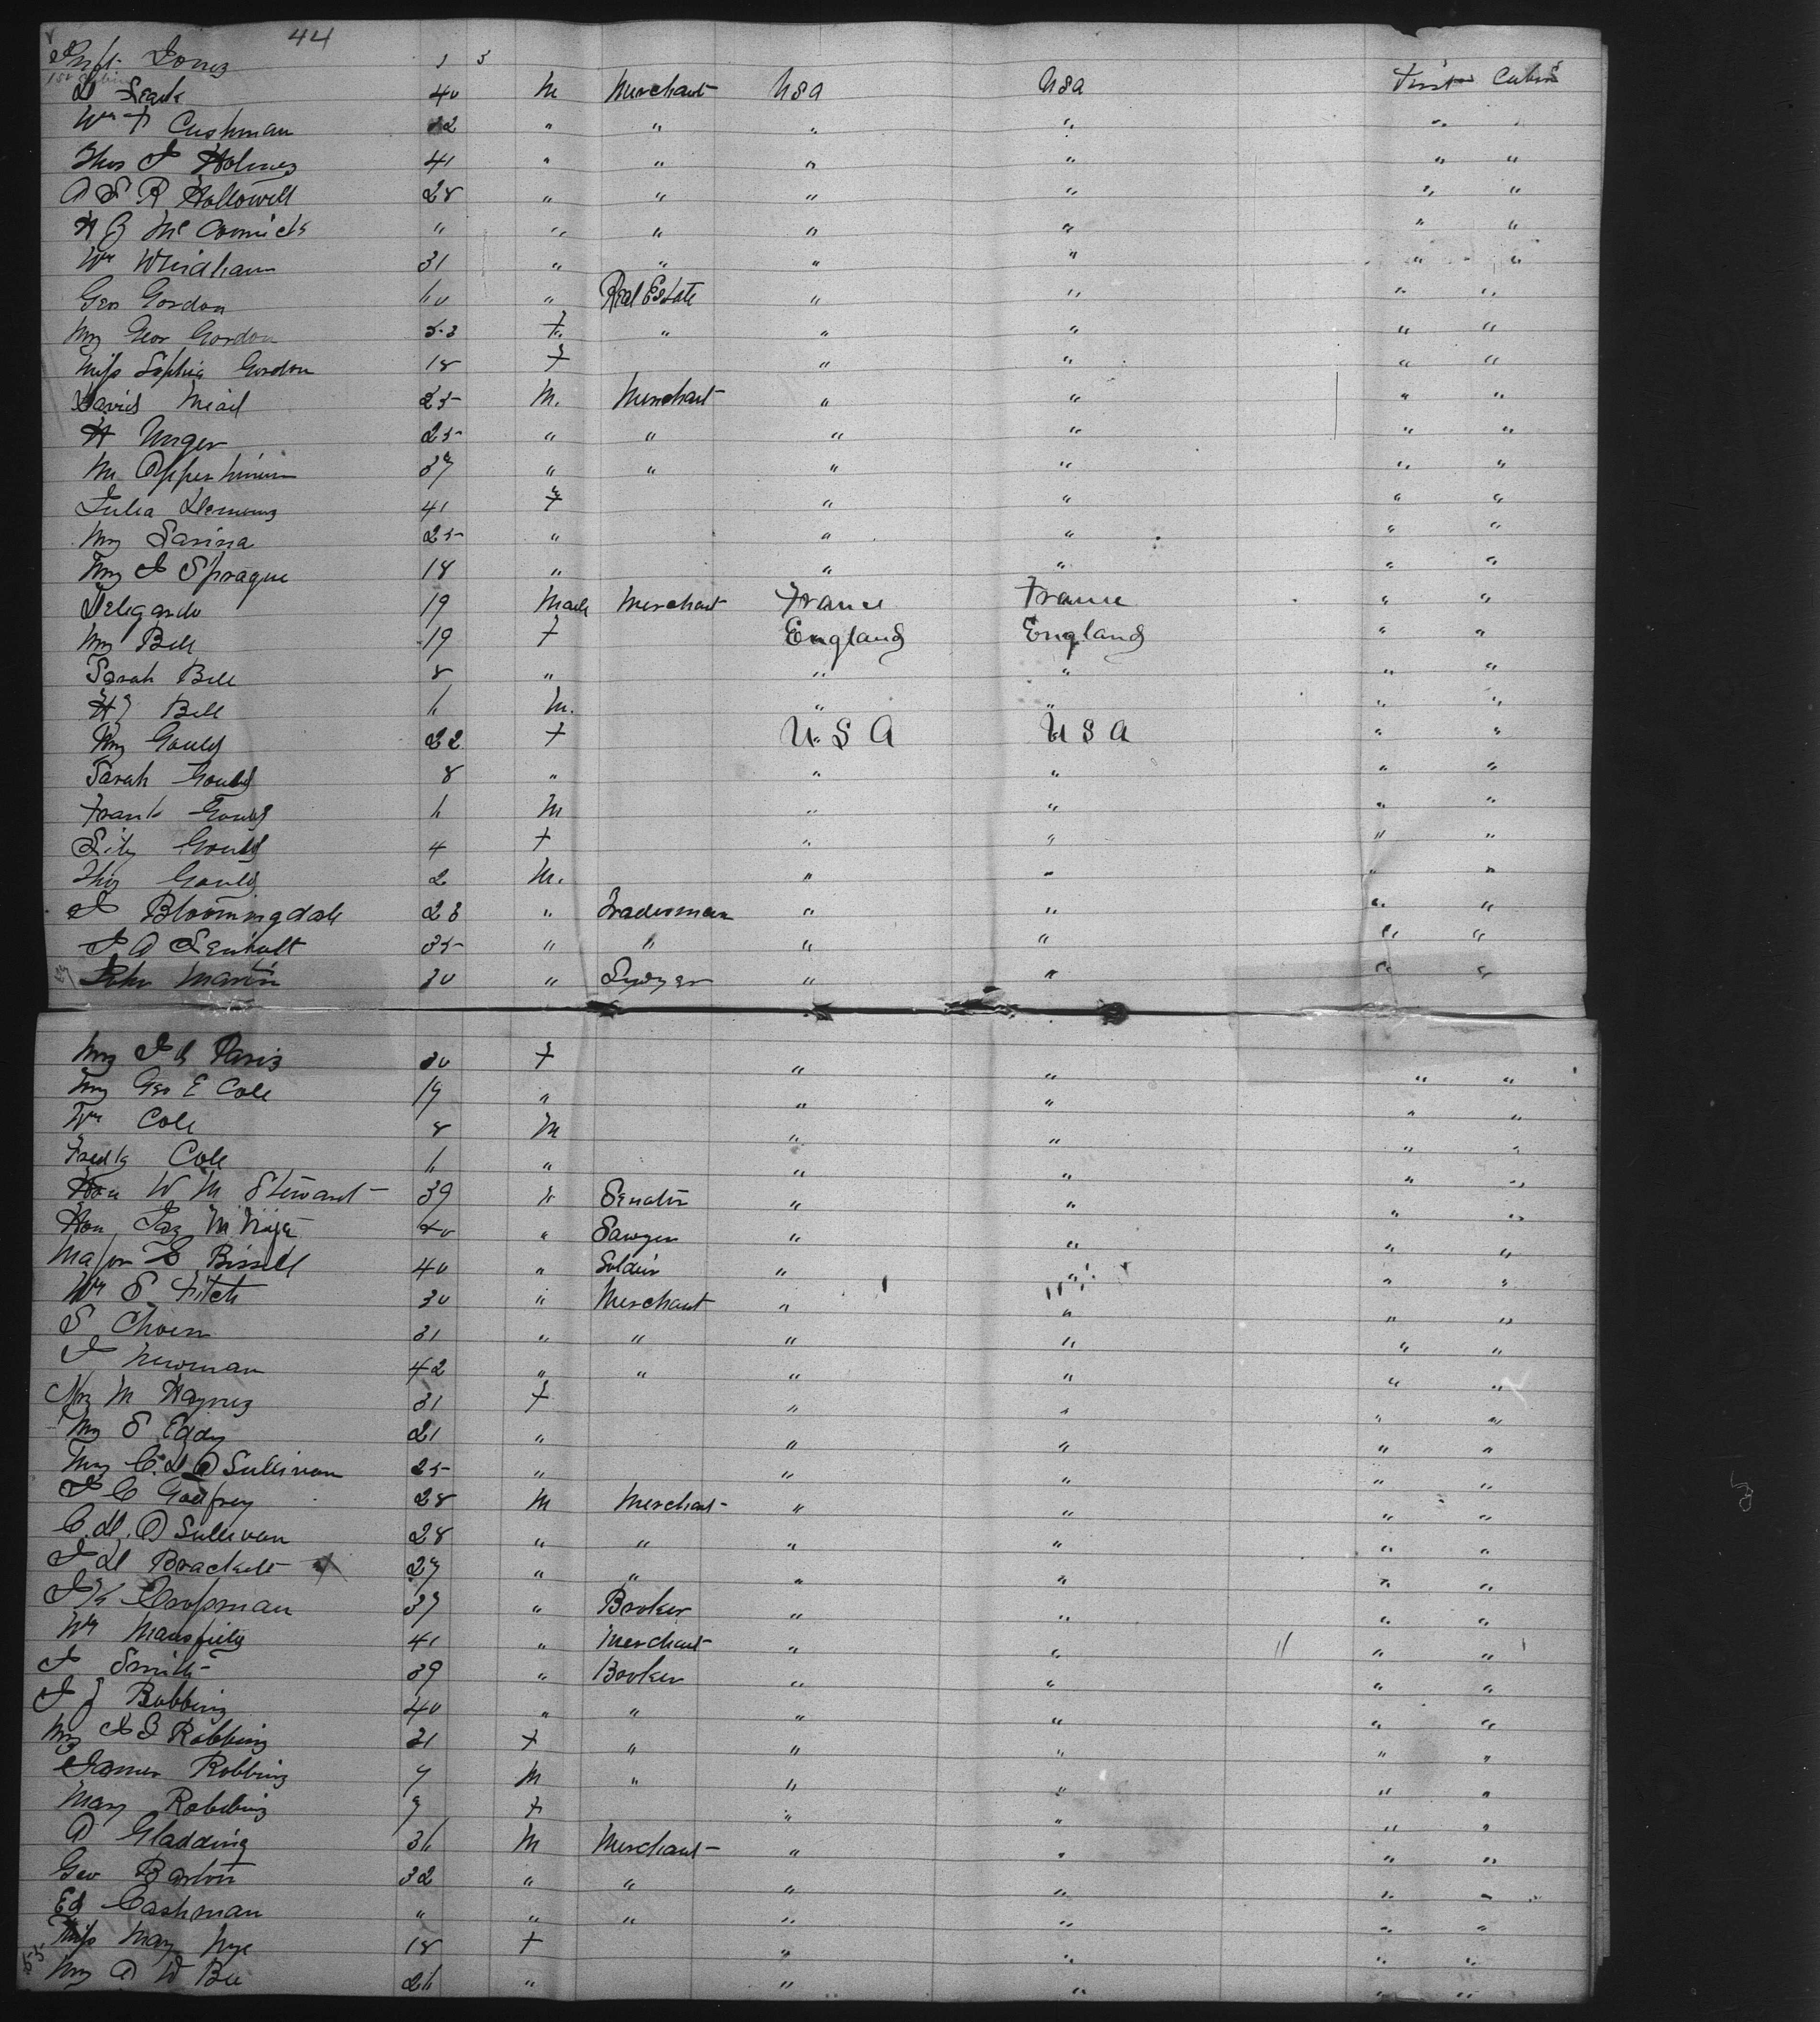 44
Inft. Jones 1 3
1st Cabin
D Leach 40 M Merchant USA USA First Cabin
Wm F Cushman 32 " " " " " "
Thos J Holmes 41 " " " " " "
A S R Hallowell 28 " " " " " "
H J McCormick " " " " " " "
Wm Windham 31 " " " " " "
Geo Gordon 60 " Real Estate " " " "
Mrs Geor Gordon 53 F " " " " "
Miss Sophia Gordon 18 F " " " "
David Miail 25 M. Merchant " " " "
H Unger 25 " " " " " "
M 37 " " " " " "
Julia 41 F " " " "
Mrs Sarina 25 " " " " "
Mrs J Sprague 18 " " " " "
Deligardo 19 Male Merchant France France " "
Mrs Bell 19 F England England " "
Sarah Bell 8 " " " " "
H J Bell 6 M. " " " "
Mrs Gould 22 F U.S A U S A " "
Sarah Gould 8 " " " " "
Frank Gould 6 M " " " "
Lily Gould 4 F " " " "
Thos Gould 2 M. " " " "
J Bloomingdale 23 " Tradesman " " " "
J A 35 " " " " " "
John Martin 30 " " " " "
Mrs J A Paris 30 F " " " "
Mrs Geo E Cole 19 " " " " "
Wm Cole 8 M " " " "
Fredk Cole 6 " " " " "
Hon W M Stewart 39 " Senator " " " "
Hon Jas M 40 " Lawyer " " " "
Major E Bissell 40 " Soldier " " " "
Wm S Fitch 30 " Merchant " " " "
S Choen 31 " " " " " "
J Newman 42 " " " " " "
Mrs M Haynes 31 F " " " "
Mrs S Eddy 21 " " " " "
Mrs C. D O Sullivan 25 " " " " "
J C Godfrey 28 M Merchant " " " "
C. D. O Sullivan 28 " " " " " "
J D Brackett 27 " " " " " "
J K Crossman 37 " Broker " " " "
Wm Mansfield 41 " Merchant " " " "
J Smith 39 " Broker " " " "
J J Robbins 40 " " " " " "
Mrs J J Robbins 31 F " " " " "
James Robbins 7 M " " " " "
Mary Robbins 9 F " " " "
A Gladding 36 M Merchant " " " "
Geo Barton 32 " " " " " "
Ed Cashman " " " " " " "
Miss May Nye 18 F " " " "
55
Mrs A W Bee 26 " " " " "